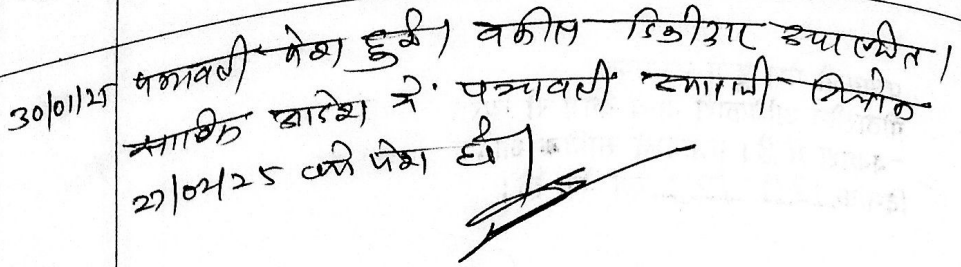 30/01/25 पत्रावली पेश हुई। वकील डिक्रीदार उपस्थित।
साबिक आदेश में पत्रावली आगामी दिनांक
27/02/25 को पेश हो।